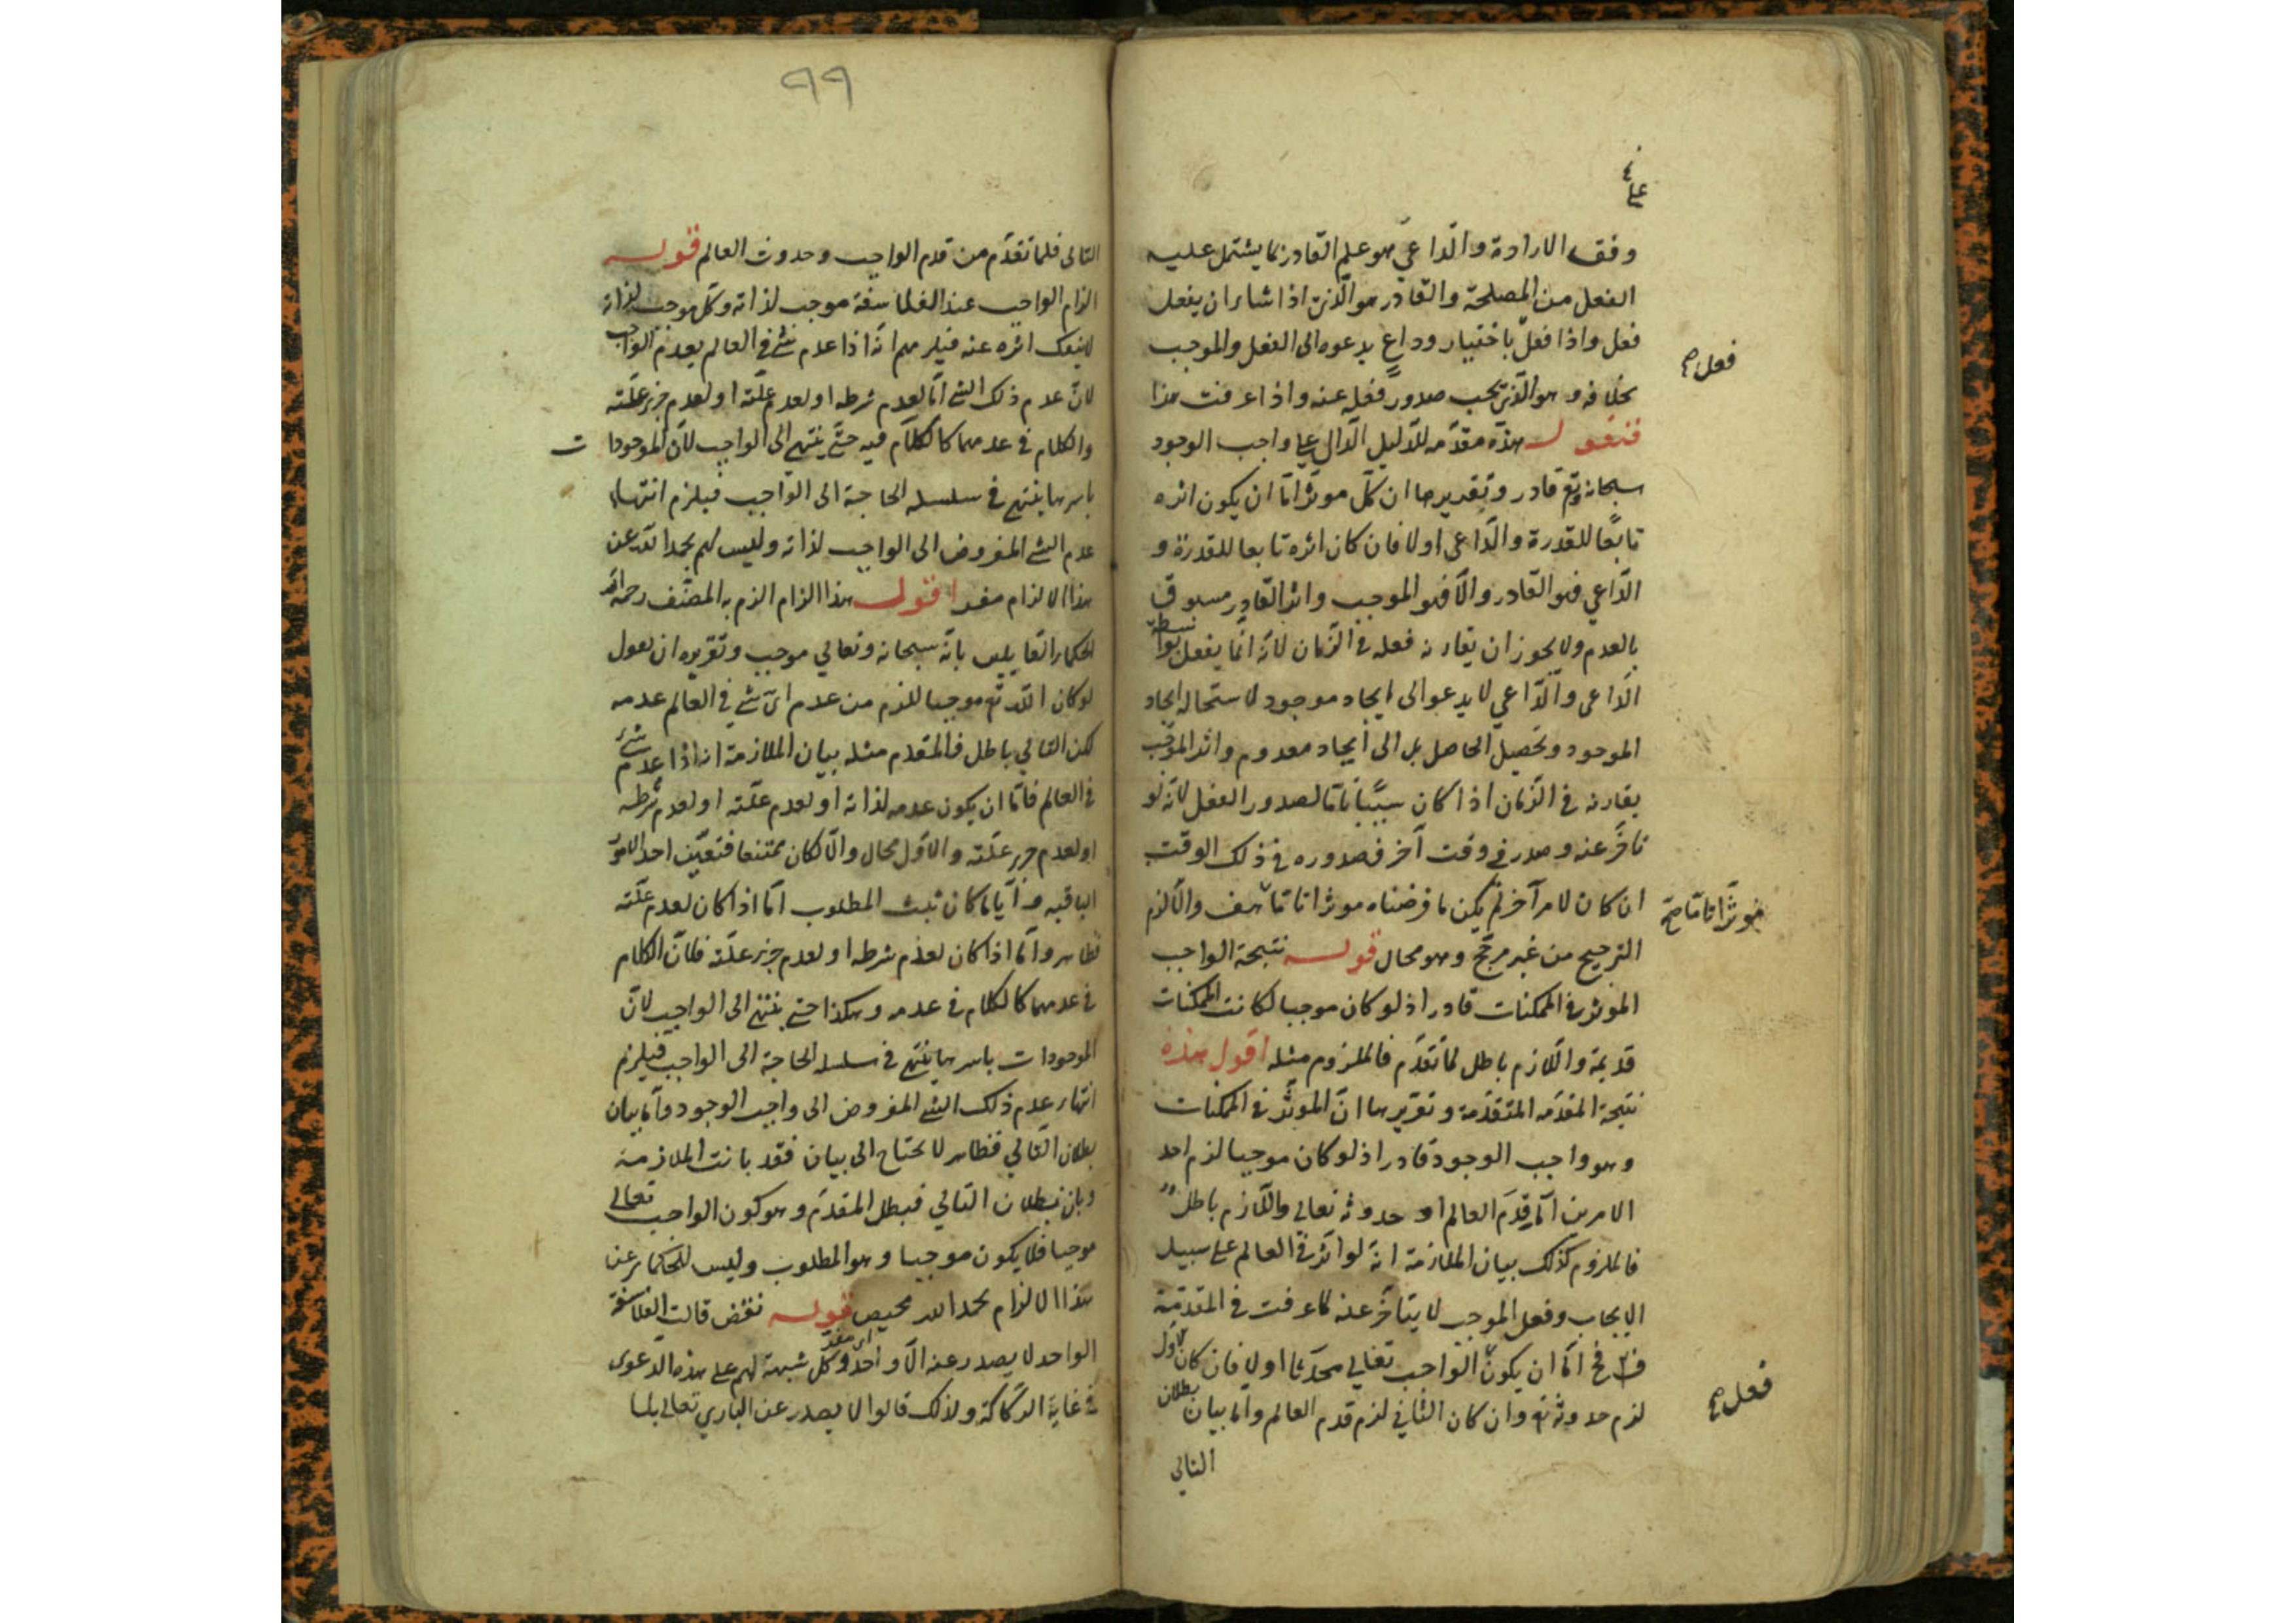 على
وفق الارادة والداعي هو علم القادر بما يشتمل عليه
الفعل من المصلحة والقادر هو الذي اذا شاء ان يفعل
فعل واذا فعل باختيار وداع يدعوه الى الفعل والموجب
فعل صح
بخلافه وهو الذي يجب صدور فعله عنه واذا عرفت هذا
فنقول هذه مقدمه للدليل الدال على واجب الوجود
سبحانه وتع قادر وتقديرها ان كل موثر اما ان يكون اثره
تابعا للقدرة والداعى اولا فان كان اثره تابعا للقدرة و
الداعي فهو القادر والا فهو الموجب واثر القادر مسبوق
بالعدم ولا يجوز ان يقارنه فعله في الزمان لانه انما يفعل بواسطة
الداعى والداعي لا يدعو الى ايجاد موجود لاستحاله ايجاد
الموجود وتحصيل الحاصل بل الى ايجاد معدوم واثر الموجب
يقارنه في الزمان اذا كان سببا تاما لصدور الفعل لانه لو
تاخر عنه وصدر في وقت آخر فصدوره في ذلك الوقت
ان كان لامر آخر لم يكن ما فرضناه موثرا تاما هف والا لزم
موثرا تاما صح
الترجيح من غير مرجح وهو محال قوله نتيجة الواجب
الموثر في الممكنات قادر اذ لو كان موجبا لكانت الممكنات
قديمة واللازم باطل لما تقدم فالملزوم مثله اقول هذه
نتيجة المقدمه المتقدمة وتقريرها ان الموثر في الممكنات
وهو واجب الوجود قادر اذ لو كان موجبا لزم احد
الامرين اما قدم العالم او حدوثه تعالى واللازم باطل
فالملزوم كذلك بيان الملازمة انه لو اثر في العالم على سبيل
الايجاب وفعل الموجب لا يتاخر عنه لما عرفت في المقدمة
فح اما ان يكون الواجب تعالي محدثا اولا فان كان الاول
لزم حدوثه تع وان كان الثاني لزم قدم العالم واما بيان بطلان
فعل صح
التالي
٩٩
التالى فلما تقدم من قدم الواجب وحدوث العالم قوله
الزام الواجب عند الفلاسفة موجب لذاته وكل موجب لذاته
لا ينفك اثره عنه فيلزمهم انه اذا عدم شئ في العالم يعدم الواجب
لان عدم ذلك الشئ اما لعدم شرطه او لعدم علته او لعدم جزء علته
والكلام في عدمهما كالكلام فيه حتى ينتهي الى الواجب لان الموجودا
ت
باسرها ينتهى في سلسله الحاجة الى الواجب فيلزم انتهاء
عدم الشئ المفروض الى الواجب لذاته وليس لهم بحمد الله عن
هذا الالزام مفر اقول هذا الزام الزم به المصنف رحمه الله
الحكماء القايلين بانه سبحانه وتعالي موجب وتقريره ان نقول
لو كان الله تع موجبا للزم من عدم اي شئ في العالم عدمه
لكن التالي باطل فالمقدم مثله بيان الملازمة انه اذا عدم شئ
في العالم فاما ان يكون عدمه لذاته او لعدم علته او لعدم شرطه
او لعدم جزء علته والاول محال والا لكان ممتنعا فتعين احد الامور
الباقيه وايا ما كان ثبت المطلوب اما اذا كان لعدم علته
فظاهر واما اذا كان لعدم شرطه او لعدم جزء علته فلان الكلام
في عدمهما كالكلام في عدمه وهكذا حتى ينتهي الى الواجب لان
الموجودات باسرها ينتهى في سلسله الحاجة الى الواجب فيلزم
انتهاء عدم ذلك الشئ المفروض الى واجب الوجود واما بيان
بطلان التالي فظاهر لا يحتاج الى بيان فقد بانت الملازمة
وبان بطلان التالي فبطل المقدم وهو كون الواجب تعالى
موجبا فلا يكون موجبا وهو المطلوب وليس للحكماء عن
هذا الالزام بحمد الله محيص قوله نقض قالت الفلاسفة
اى مفر
الواحد لا يصدر عنه الا واحد وكل شبهة لهم على هذه الدعوى
في غاية الركاكة ولذلك قالوا لا يصدر عن الباري تعالى بلا